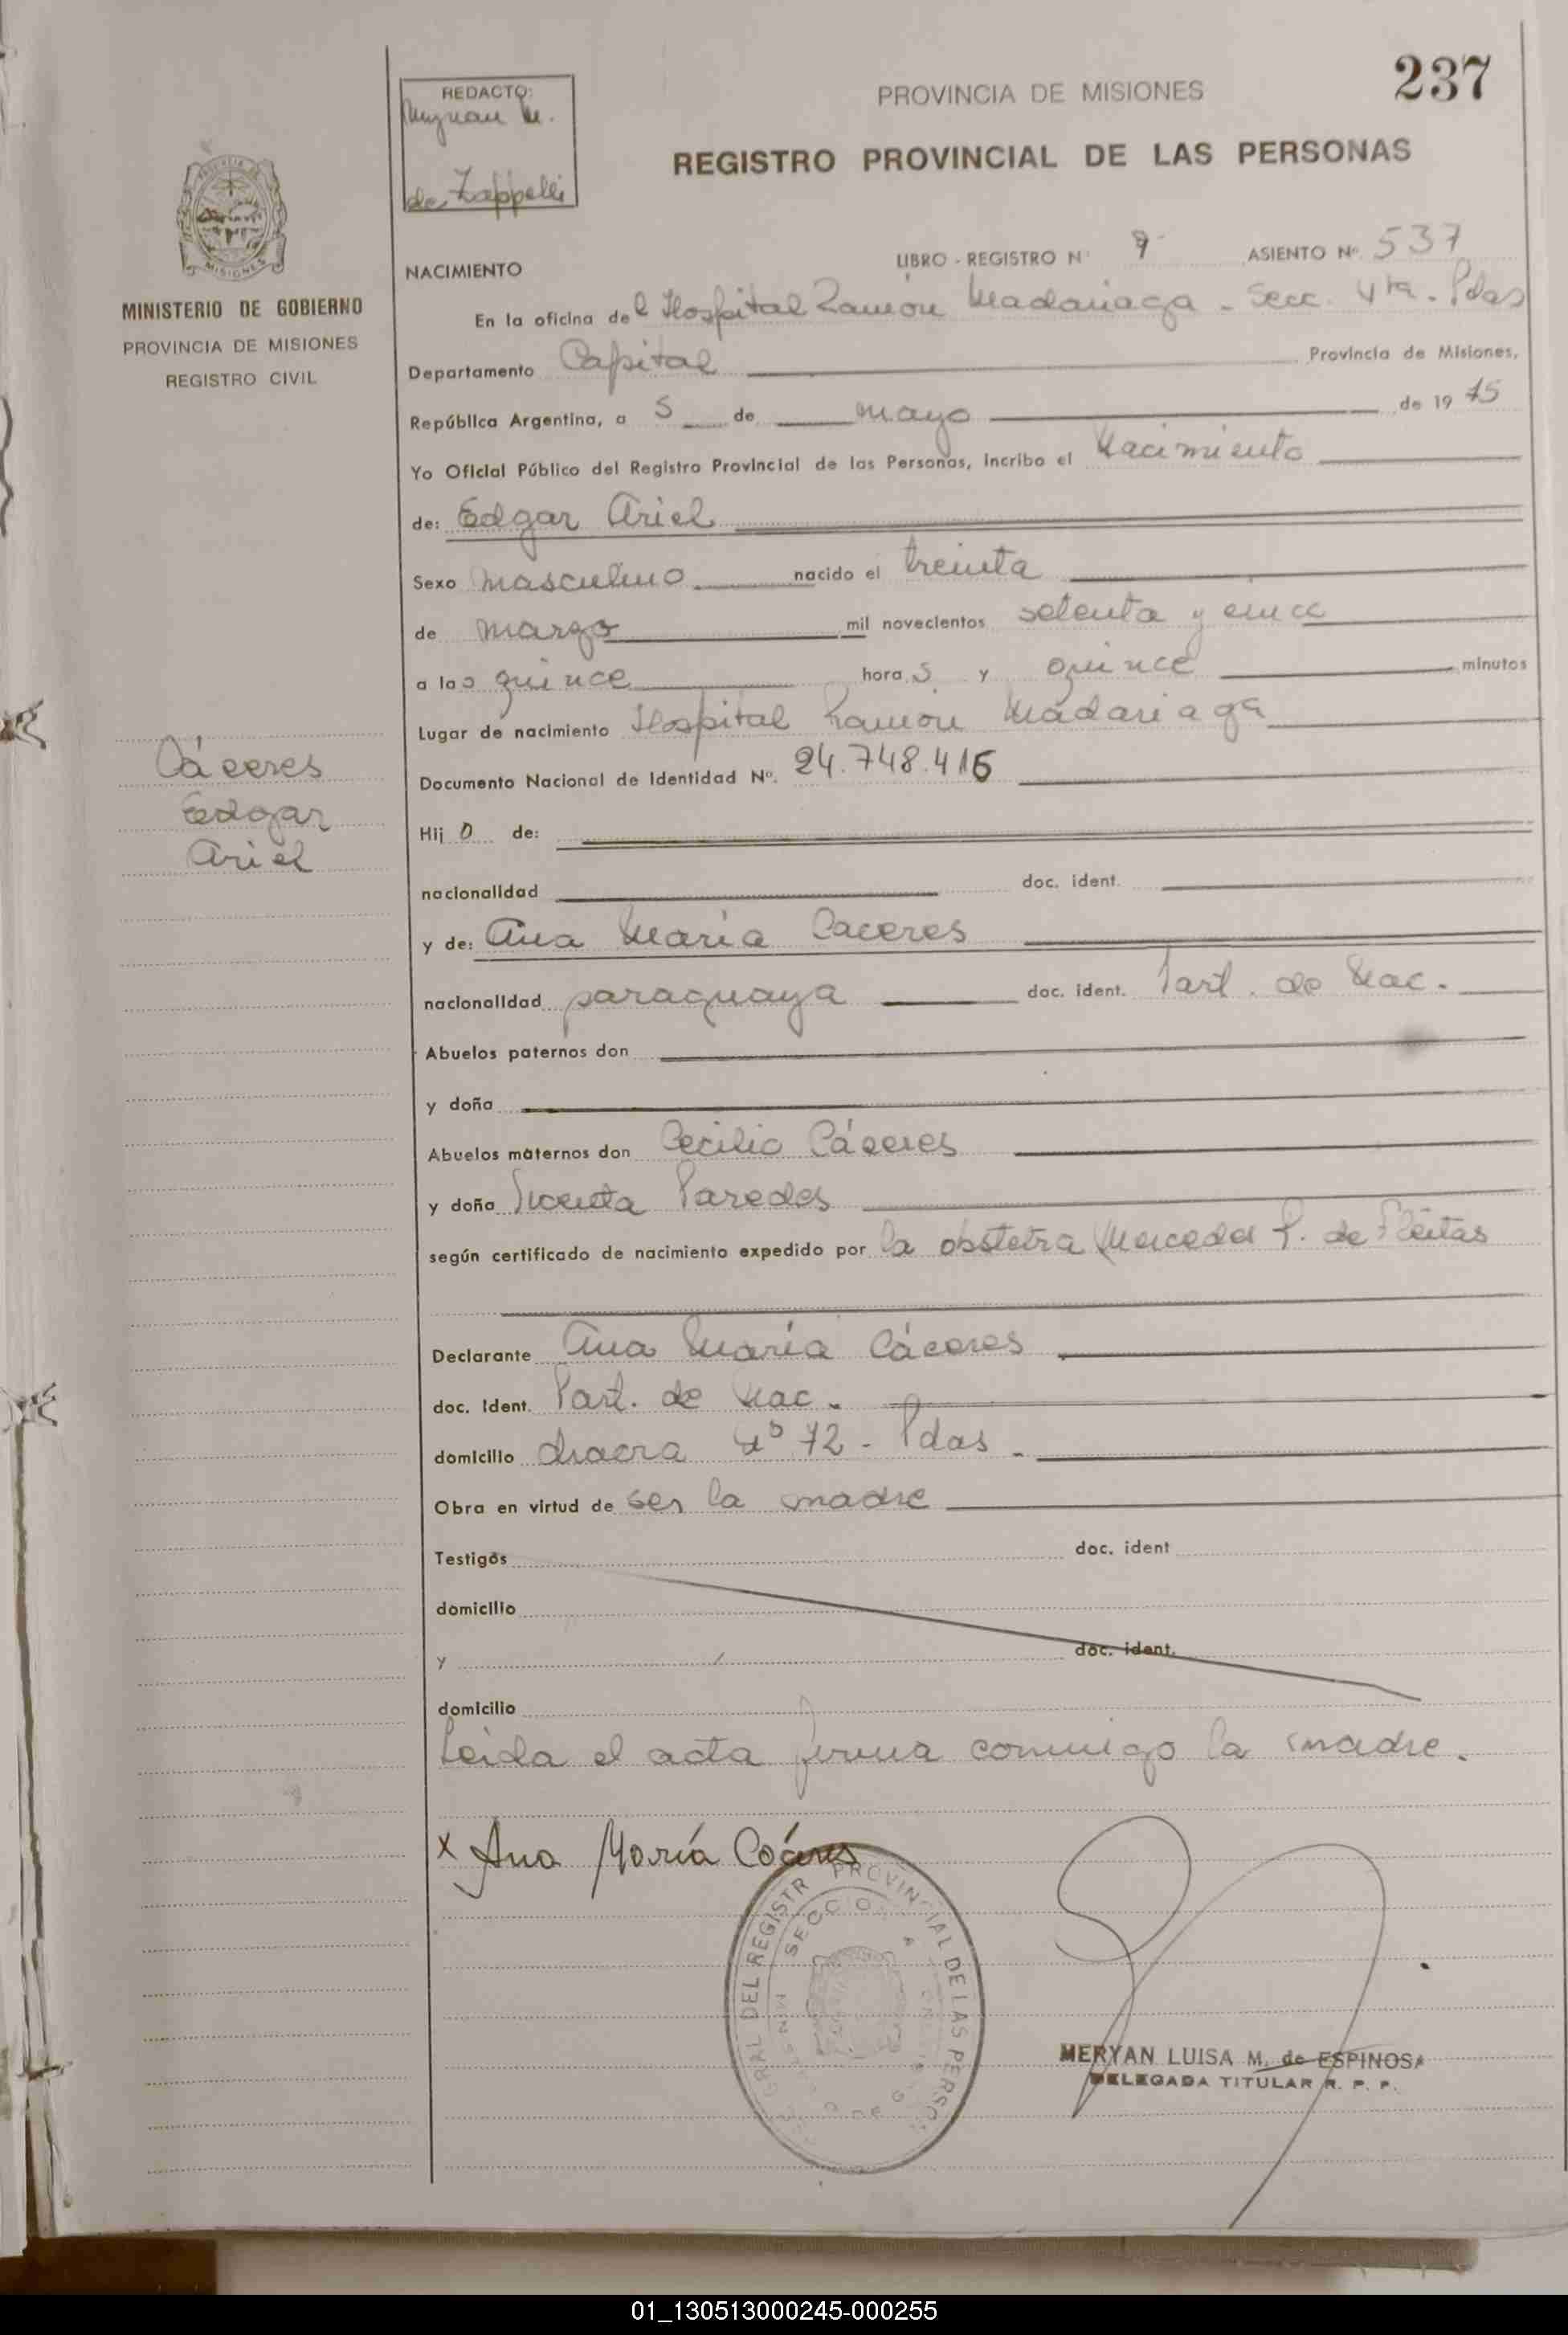 237
REDACTO:
Myrian M.
de Zappelli
PROVINCIA DE MISIONES
REGISTRO PROVINCIAL DE LAS PERSONAS
MISIONES
MINISTERIO DE GOBIERNO
PROVINCIA DE MISIONES
REGISTRO CIVIL
NACIMIENTO
LIBRO - REGISTRO Nº 9 ASIENTO Nº 537
En la oficina del Hospital Ramón Madariaga - Secc. 4ta. Pdas
Departamento Capital Provincia de Misiones,
República Argentina, a 5 de mayo de 19 75
Yo Oficial Público del Registro Provincial de las Personas, incribo el Nacimiento
de: Edgar Ariel
Sexo masculino nacido el treinta
de marzo mil novecientos setenta y cinco
a las quince horas y quince minutos
Lugar de nacimiento Hospital Ramón Madariaga
Documento Nacional de Identidad Nº. 24.748.416
Cáceres
Edgar
Ariel
Hij o de:
nacionalidad doc. ident.
y de: Ana María Caceres
nacionalidad paraguaya doc. ident. Part. de Nac.
Abuelos paternos don
y doña
Abuelos maternos don Cecilio Cáceres
y doña Paredes
según certificado de nacimiento expedido por la obstetra Mercedes P. de Fleitas
Declarante Ana María Cáceres
doc. Ident. Part. de Nac.
domicilio chacra Nº 72 - Pdas.
Obra en virtud de ser la madre
Testigos doc. ident
domicilio
y doc. ident.
domicilio
Leída el acta firma conmigo la madre.
x Ana María Cáceres
DEL REGISTR PROVINCIAL DE LAS PERSO
SECCIO
MERYAN LUISA M. de ESPINOSA
DELEGADA TITULAR R. P. P.
01_130513000245-000255